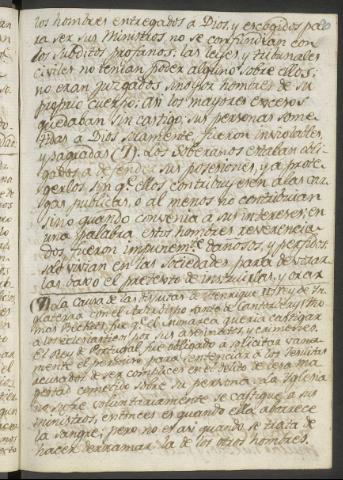 los hombres entregados a Dios, y escogidos pa
ra ser sus Ministros no se confundian con
los subditos profanos; las leyes y tribunales
civiles no tenian poder alguno sobre ellos;
no eran juzgados sino por hombres de su
proprio cuerpo; asi los mayores excesos
quedaban sin castigo: sus personas some
tidas a Dios solamente, fueron inviolables
y sagradas (7). Los Soberanos estaban obli
gados a defender sus posesiones, y a prote
gerlos sin qe. ellos contribuyesen a las car
gas publicas, o al menos no contribuian
sino quando convenia a sus intereses; en
una palabra estos hombres reverencia
dos fueron impunemte. dañosos, y perfidos,
solo vivian en las Sociedades para devorar
las, bajo el pretexto de instruirlas, y orar
(7) La Causa de las disputas de Henrique II Rey de In
glaterra con el Arzobispo santo de Cantorbery Tho
mas Becket, fue qe. el Monarca queria castigar
a los eclesiasticos por sus asesinatos, y crimenes.
El Rey de Portugal, fue obligado a solicitar vana
mente el permiso para sentenciar a los Jesuitas
acusados de ser complices en el delito de lesa ma
gestad cometido sobre su persona. La Iglesia
no sufre voluntariamente se castigue a sus
ministros, entonces es quando ella aborrece
la sangre; pero no es asi quando se trata de
hacer derramar la de los otros hombres.